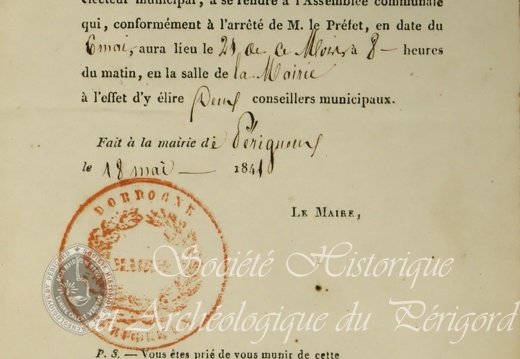 électeur municipal, à se rendre à l'Assemblée communale
qui, conformément à l'arrêté de M. le Préfet, en date du
6 mai, aura lieu le 21 de ce Mois, à 8 — heures
du matin, en la salle de la Mairie
à l'effet d'y élire Deux conseillers municipaux.
Fait à la mairie de Périgueux
le 18 mai — 1841
LE MAIRE,
DORDOGNE
Société Historique
et Archéologique du Périgord
P. S. — Vous êtes prié de vous munir de cette